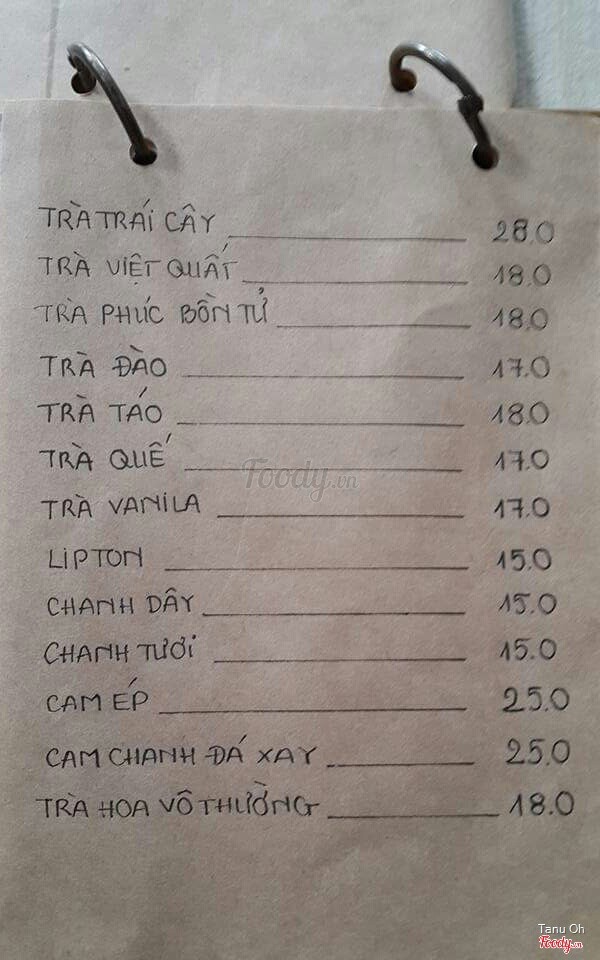 TRÀ TRÁI CÂY 28.0
TRÀ VIỆT QUẤT 18.0
TRÀ PHÚC BỒN TỬ 18.0
TRÀ ĐÀO 17.0
TRÀ TÁO 18.0
TRÀ QUẾ 17.0
TRÀ VANILA 17.0
LIPTON 15.0
CHANH DÂY 15.0
CHANH TƯƠI 15.0
CAM ÉP 25.0
CAM CHANH ĐÁ XAY 25.0
TRÀ HOA VÔ THƯỜNG 18.0
Foody.vn
Tanu Oh
Foody.vn